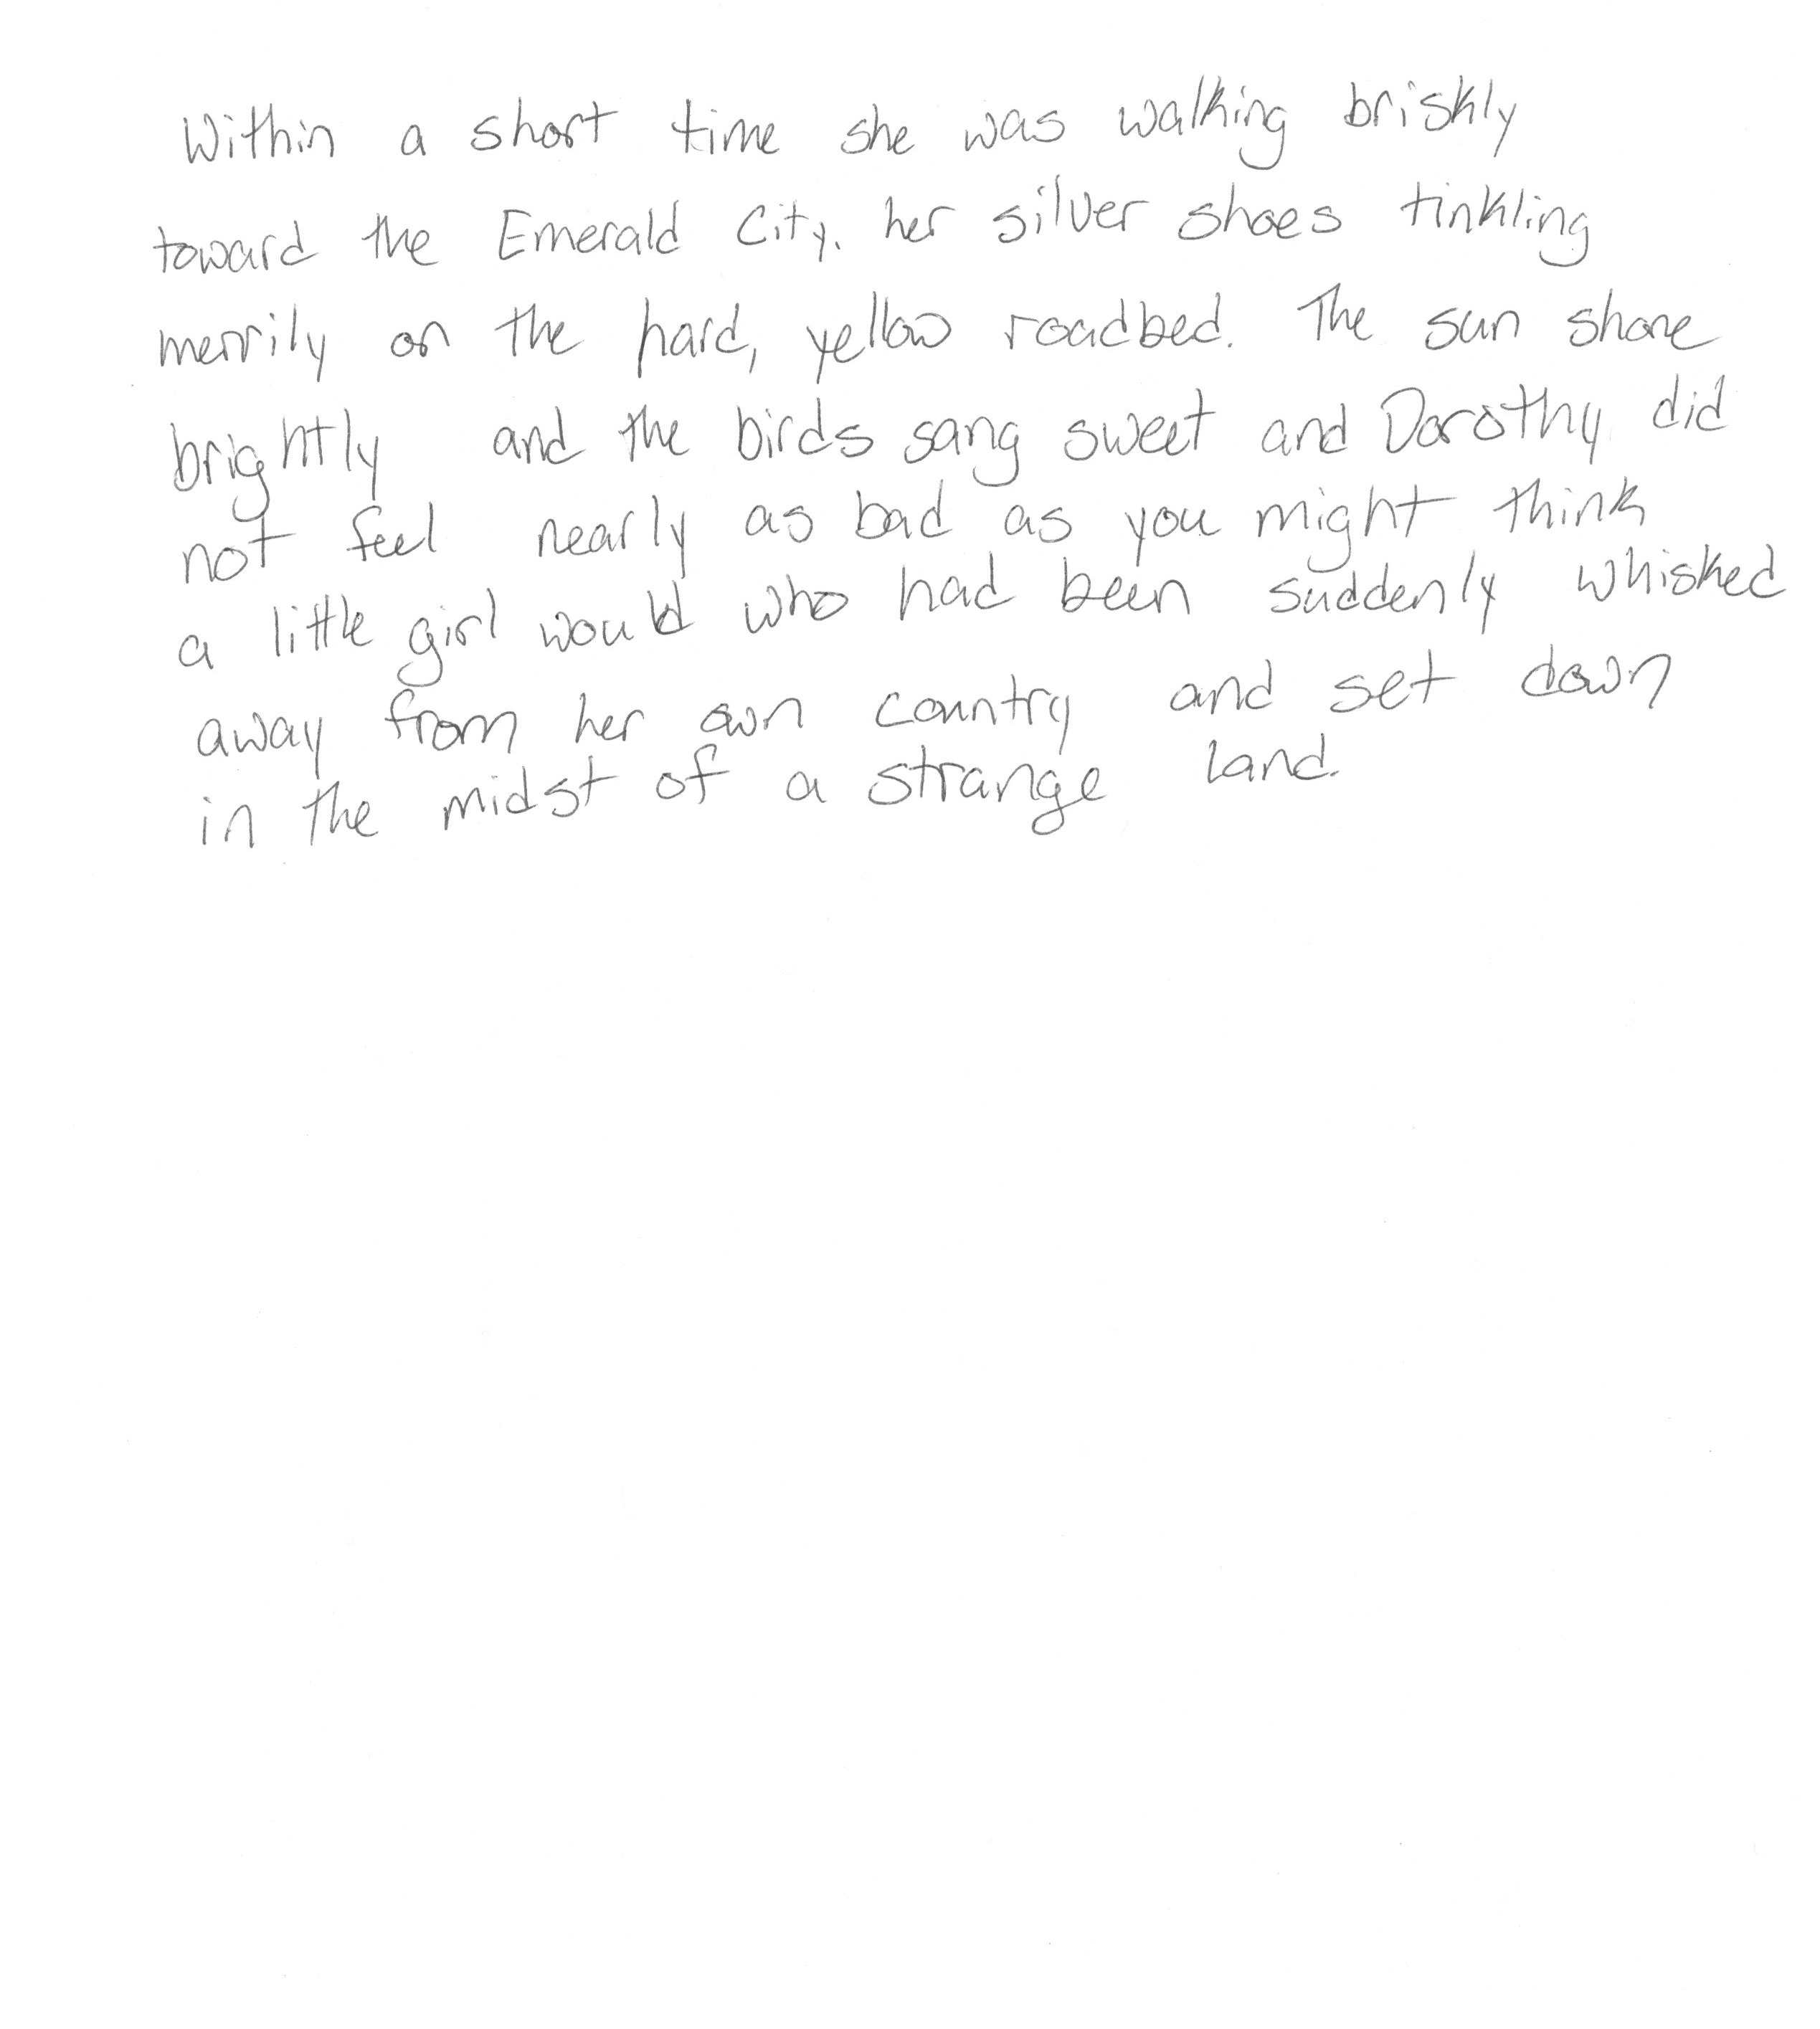 Within a short time she was walking briskly
toward the Emerald City. her silver shoes tinkling
merrily on the hard, yellow roadbed. The sun shone
brightly and the birds sang sweet and Dorothy did
not feel nearly as bad as you might think
a little girl would who had been suddenly whisked
away from her own country and set down
in the midst of a strange land.